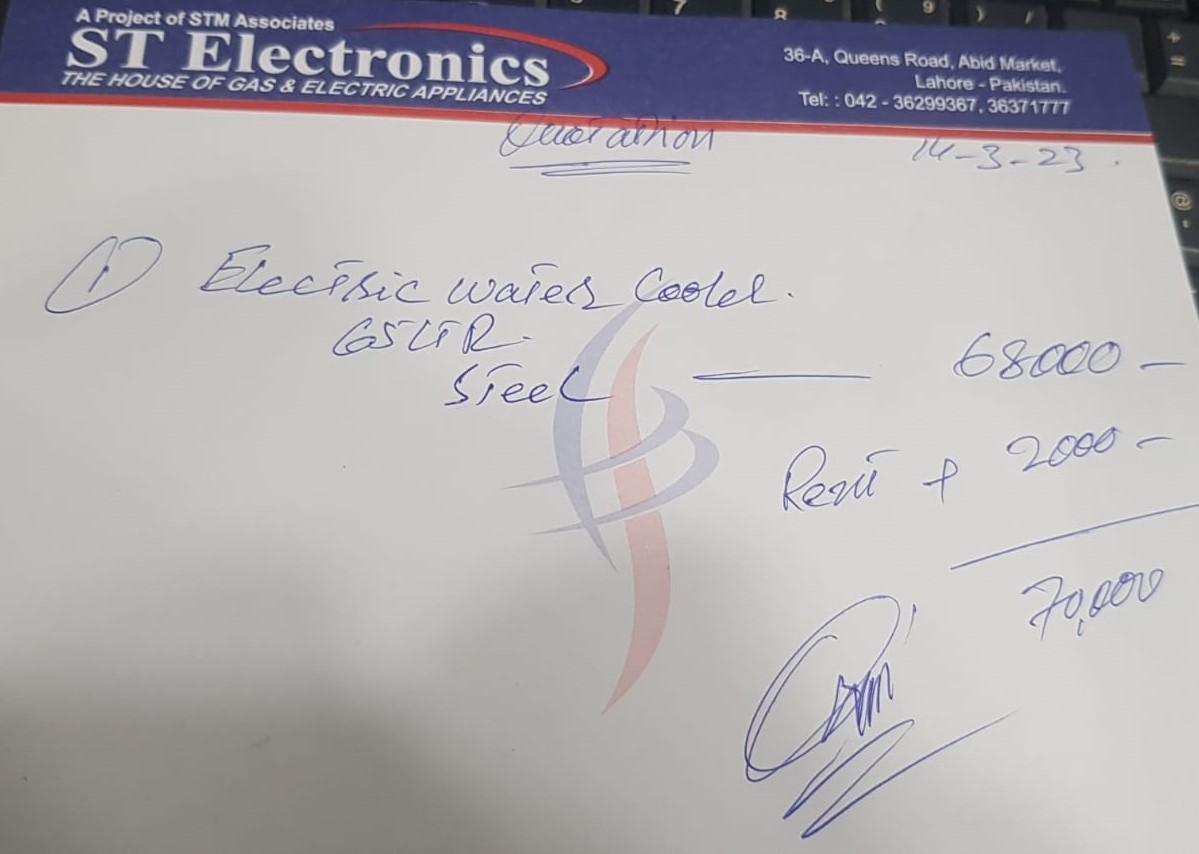 A Project of STM Associates
ST Electronics
THE HOUSE OF GAS & ELECTRIC APPLIANCES
36-A, Queens Road, Abid Market,
Lahore - Pakistan.
Tel: : 042 - 36299367, 36371777
Quotation
14-3-23.
① Electric water Cooler.
65 LTR.
Steel — 68000 —
Rent + 2000 —
70,000